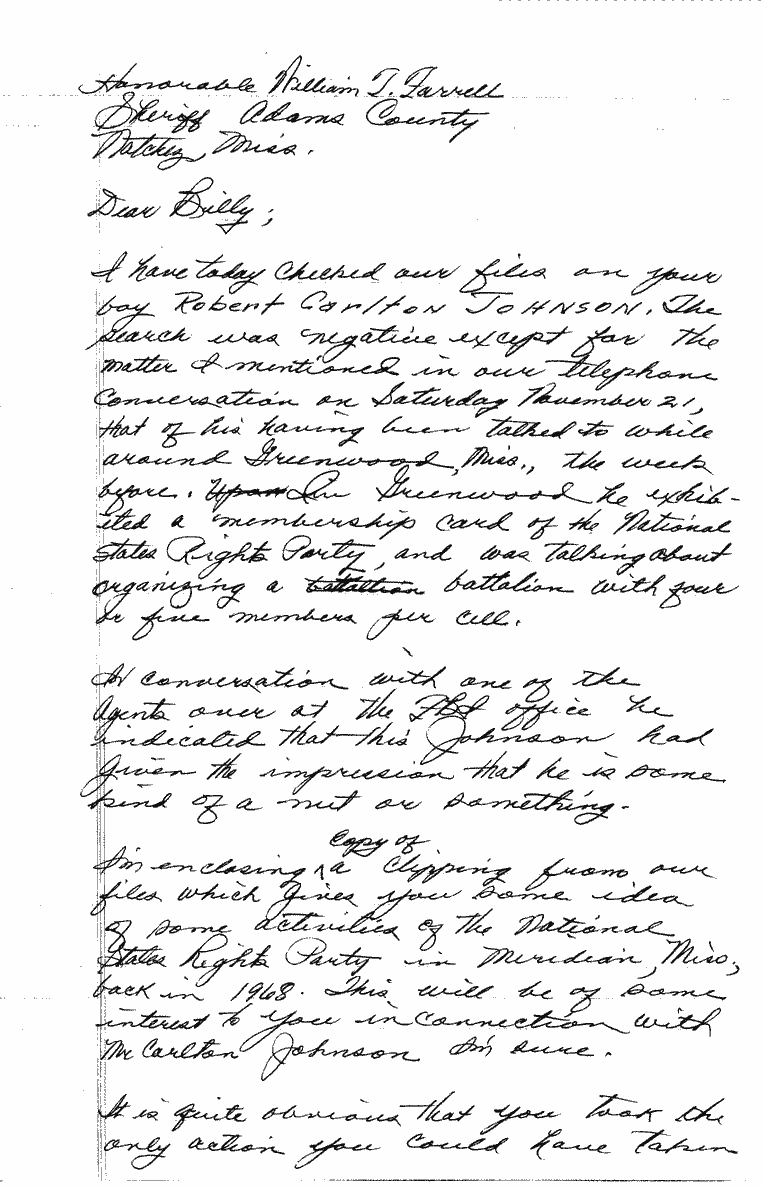 Honorable William T. Farrell
Sheriff Adams County
Natchez, Miss.
Dear Billy;
I have today checked our files on your
boy Robert Carlton JOHNSON. The
search was negative except for the
matter I mentioned in our telephone
conversation on Saturday November 21,
that of his having been talked to while
around Greenwood, Miss., the week
before. Upon In Greenwood he exhib-
ited a membership card of the National
States Rights Party, and was talking about
organizing a battaltion battalion with four
or five members per cell.
In conversation with one of the
Agents over at the FBI office he
indicated that this Johnson had
given the impression that he is some
kind of a nut or something.
Copy of
I'm enclosing a clipping from our
files which gives you some idea
of some activities of the National
States Rights Party in Meridian, Miss,
back in 1968. This will be of some
interest to you in connection with
Mr Carlton Johnson I'm sure.
It is quite obvious that you took the
only action you could have taken